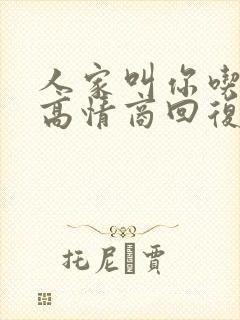 人家叫你喫
高情商回復
托尼·賈